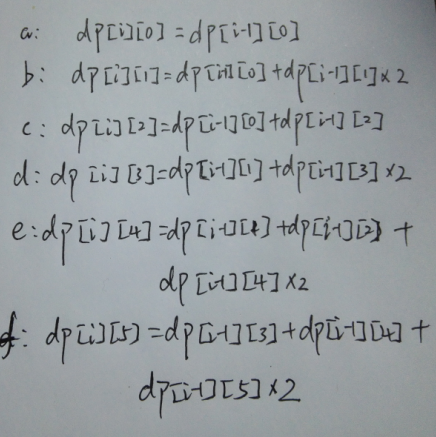 a: dp[i][0]=dp[i-1][0]
b: dp[i][1]=dp[i-1][0]+dp[i-1][1]×2
c: dp[i][2]=dp[i-1][0]+dp[i-1][2]
d: dp[i][3]=dp[i-1][1]+dp[i-1][3]×2
e: dp[i][4]=dp[i-1][1]+dp[i-1][2]+
dp[i-1][4]×2
f: dp[i][5]=dp[i-1][3]+dp[i-1][4]+
dp[i-1][5]×2